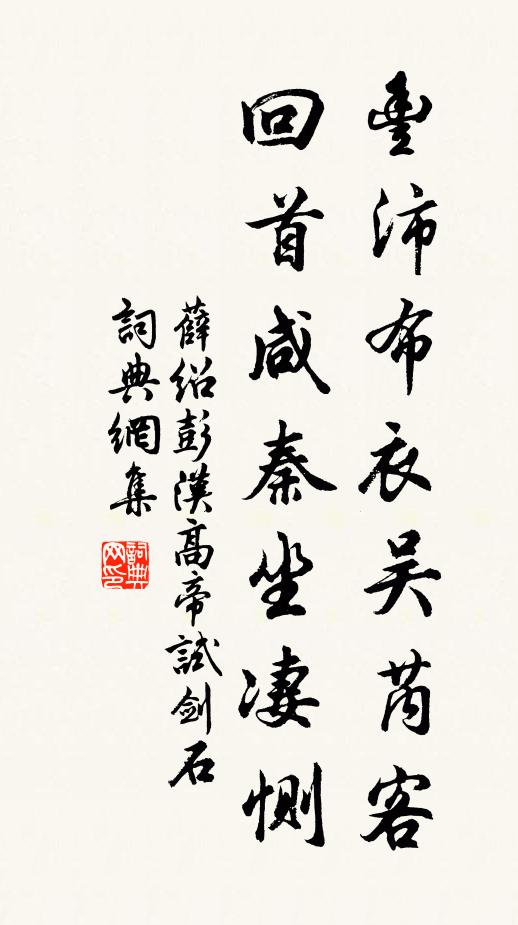 豐沛布衣吴芮客
回首咸秦坐凄惻
薛紹彭漢高帝試劍石
詞典網集
詞典网印